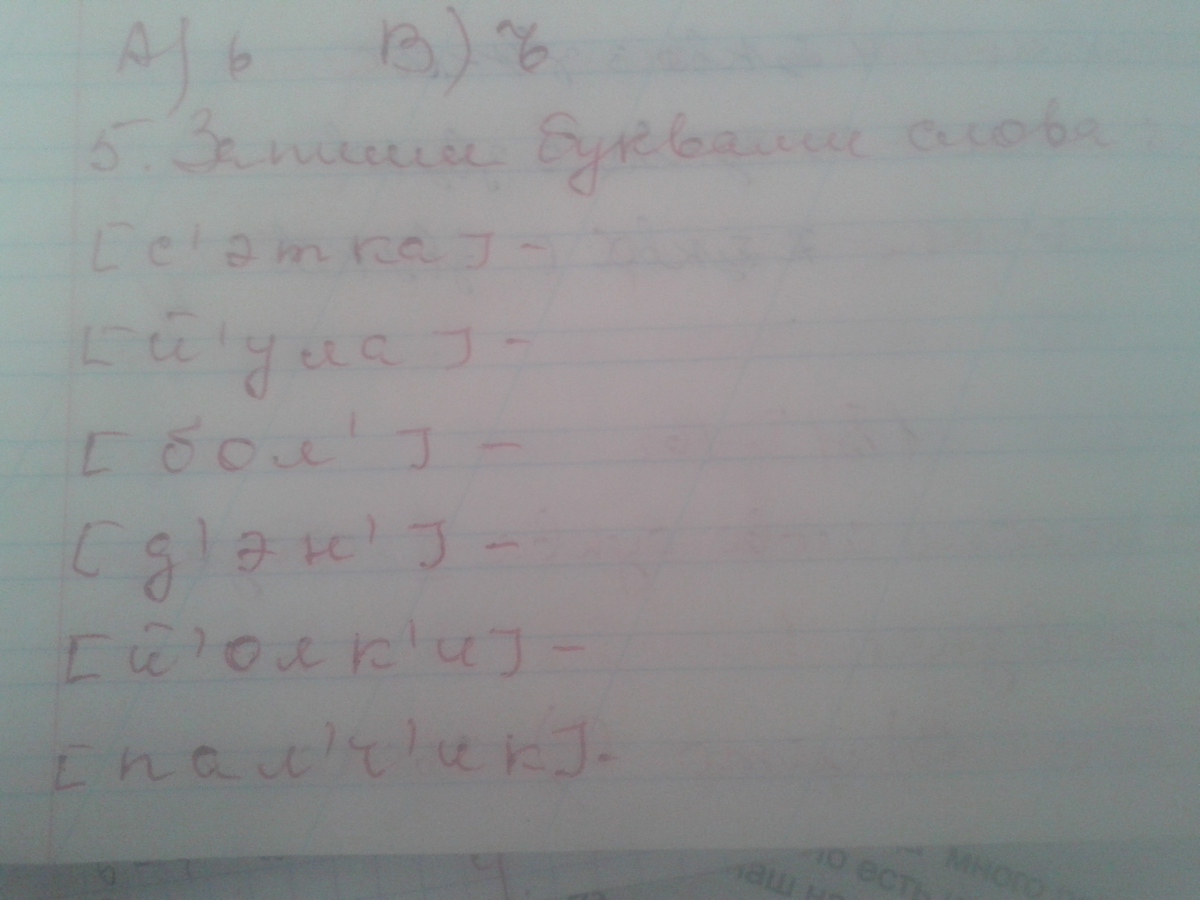 А) ь В) ъ
5. Запиши буквами слова:
[с'этка] -
[й'ула] -
[бол'] -
[д'эн'] -
[й'олк'и] -
[пал'ч'ик] -
много
то есть
наш на